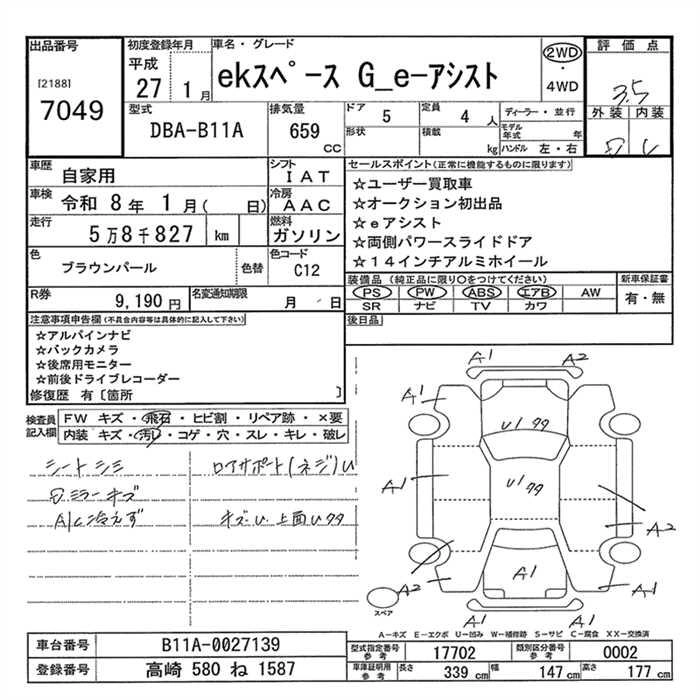 出品番号
[2188]
7049
初度登録年月
平成
27 1月
車名・グレード
ekスペース G_e-アシスト
2WD
・
4WD
評価点
3.5
外装 内装
型式
DBA-B11A
排気量
659
CC
ドア 5
形状
定員 4 人
積載 kg
ディーラー・並行
モデル年式 年
ハンドル 左・右
車歴
自家用
シフト
IAT
車検
令和 8年 1月( 日)
冷房
AAC
走行
5万8千827 km
燃料
ガソリン
色
ブラウンパール
色替
色コード
C12
R券
9,190円
名変通知期限
月 日
セールスポイント(正常に機能するものに限ります)
☆ユーザー買取車
☆オークション初出品
☆eアシスト
☆両側パワースライドドア
☆14インチアルミホイール
装備品(純正品に限り○をつけてください)
PS PW ABS エアB AW
SR ナビ TV カワ
新車保証書
有・無
後日品
注意事項申告欄(不具合内容等は具体的に記入して下さい)
☆アルパインナビ
☆バックカメラ
☆後席用モニター
☆前後ドライブレコーダー
修復歴 有〔箇所 〕
検査員
記入欄
FW キズ・飛石・ヒビ割・リペア跡・×要
内装 キズ・汚レ・コゲ・穴・スレ・キレ・破レ
シートシミ
ミラーキズ
A/C冷えず
ロアサポート(ネジ)U
キズ・U 上面Uタタ
A1
A2
A1
A1
U1タタ
U1タタ
A1
A2
A2
A1
A1
A1
スペア
A-キズ E-エクボ U-凹み W-補修跡 S-サビ C-腐食 XX-交換済
車台番号 B11A-0027139
登録番号 高崎 580 ね 1587
型式指定番号
参考
17702
類別区分番号
参考
0002
車庫証明用
参考
長さ 339 cm 幅 147 cm 高さ 177 cm